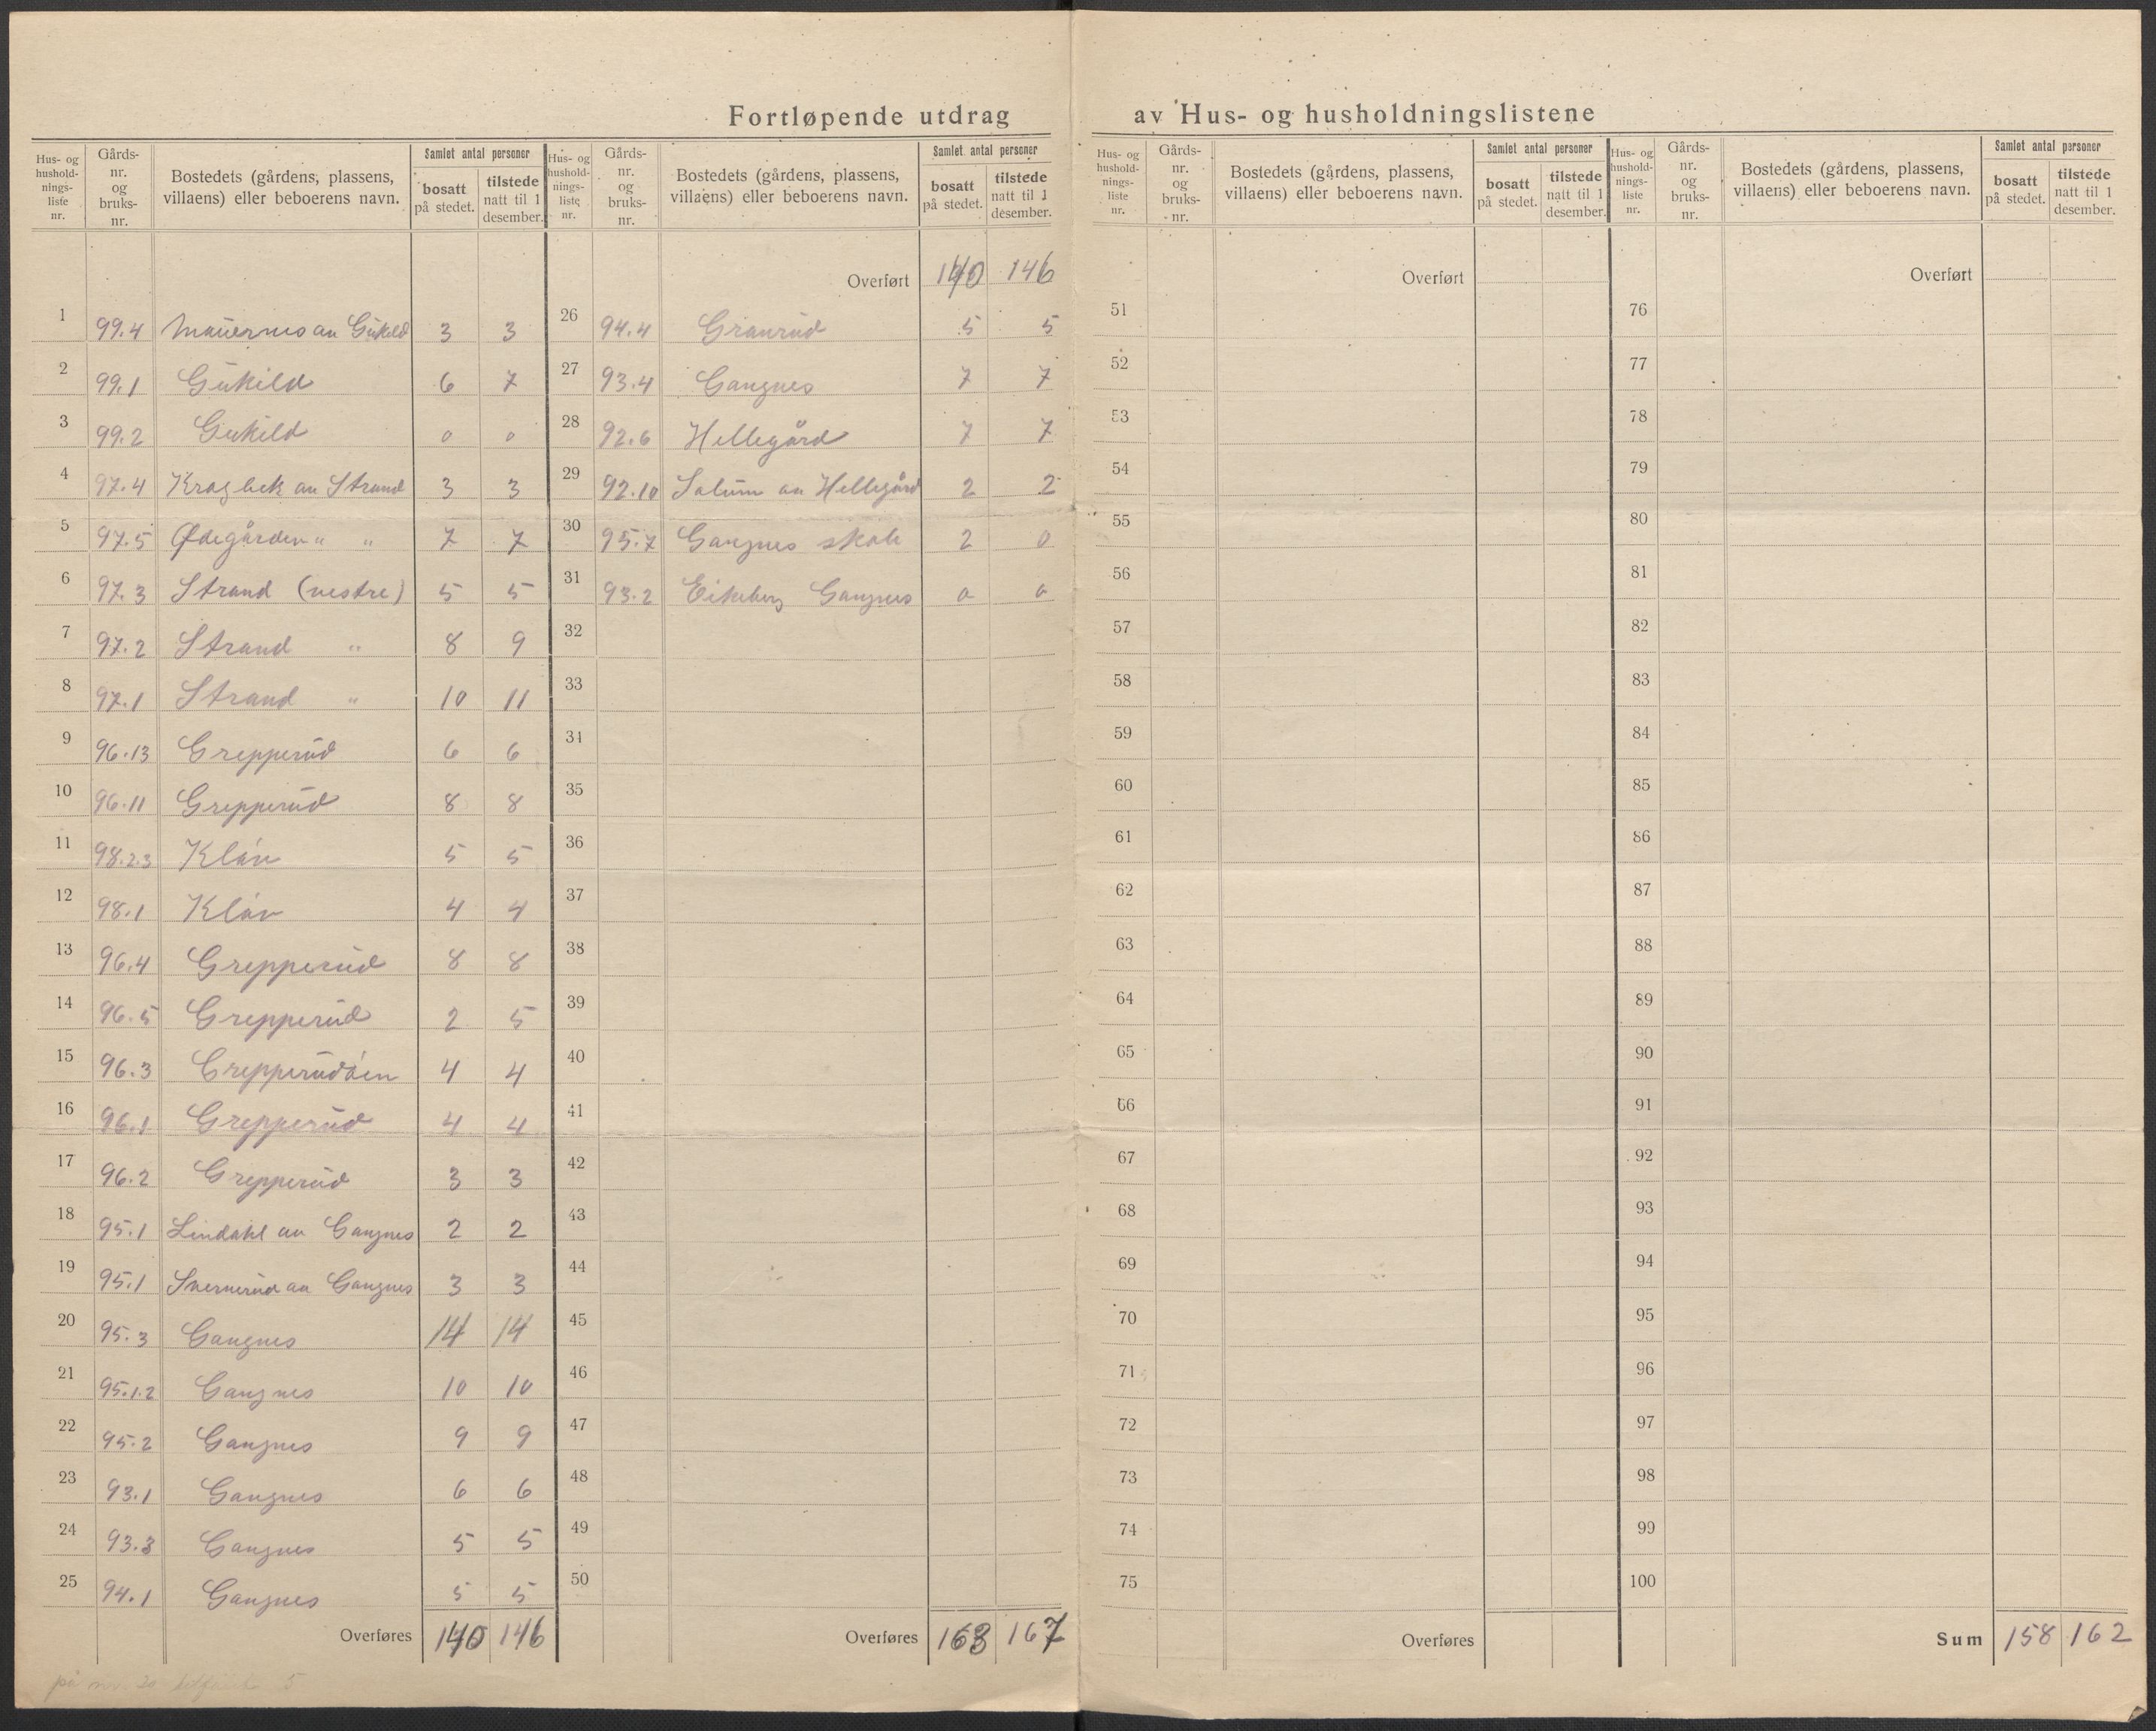 Fortløpende utdrag av Hus- og husholdningslistene
Hus- og hushold- nings- liste nr. | Gårds- nr. og bruks- nr. | Bostedets (gårdens, plassens, villaens) eller beboerens navn. | Samlet antal personer | bosatt på stedet. | tilstede natt til 1 desember.
1 99.4 an Gukild 3 3
2 99.1 Gukild 6 7
3 99.2 Gukild 0 0
4 97.4 Kragbek an Strand 3 3
5 97.5 Ødegården " " 7 7
6 97.3 Strand (vestre) 5 5
7 97.2 Strand " 8 9
8 97.1 Strand " 10 11
9 96.13 Grepperud 6 6
10 96.11 Grepperud 8 8
11 98.2.3 Kláv 5 5
12 98.1 Kláv 4 4
13 96.4 Grepperud 8 8
14 96.5 Grepperud 2 5
15 96.3 Grepperudáen 4 4
16 96.1 Grepperud 4 4
17 96.2 Grepperud 3 3
18 95.1 Lindahl an Gangnes 2 2
19 95.1 an Gangnes 3 3
20 95.3 Gangnes 14 14
21 95.1.2 Gangnes 10 10
22 95.2 Gangnes 9 9
23 93.1 Gangnes 6 6
24 93.3 Gangnes 5 5
25 94.1 Gangnes 5 5
Overføres 140 146
på nr. 20 5
Hus- og hushold- nings- liste nr. | Gårds- nr. og bruks- nr. | Bostedets (gårdens, plassens, villaens) eller beboerens navn. | Samlet antal personer | bosatt på stedet. | tilstede natt til 1 desember.
Overført 140 146
26 94.4 Granrud 5 5
27 93.4 Gangnes 7 7
28 92.6 Hellegård 7 7
29 92.10 Solum an Hellegård 2 2
30 95.7 Gangnes skole 2 0
31 93.2 Eikeberg Gangnes 0 0
32
33
34
35
36
37
38
39
40
41
42
43
44
45
46
47
48
49
50
Overføres 163 167
Hus- og hushold- nings- liste nr. | Gårds- nr. og bruks- nr. | Bostedets (gårdens, plassens, villaens) eller beboerens navn. | Samlet antal personer | bosatt på stedet. | tilstede natt til 1 desember.
Overført
51
52
53
54
55
56
57
58
59
60
61
62
63
64
65
66
67
68
69
70
71
72
73
74
75
Overføres
Hus- og hushold- nings- liste nr. | Gårds- nr. og bruks- nr. | Bostedets (gårdens, plassens, villaens) eller beboerens navn. | Samlet antal personer | bosatt på stedet. | tilstede natt til 1 desember.
Overført
76
77
78
79
80
81
82
83
84
85
86
87
88
89
90
91
92
93
94
95
96
97
98
99
100
Sum 158 162